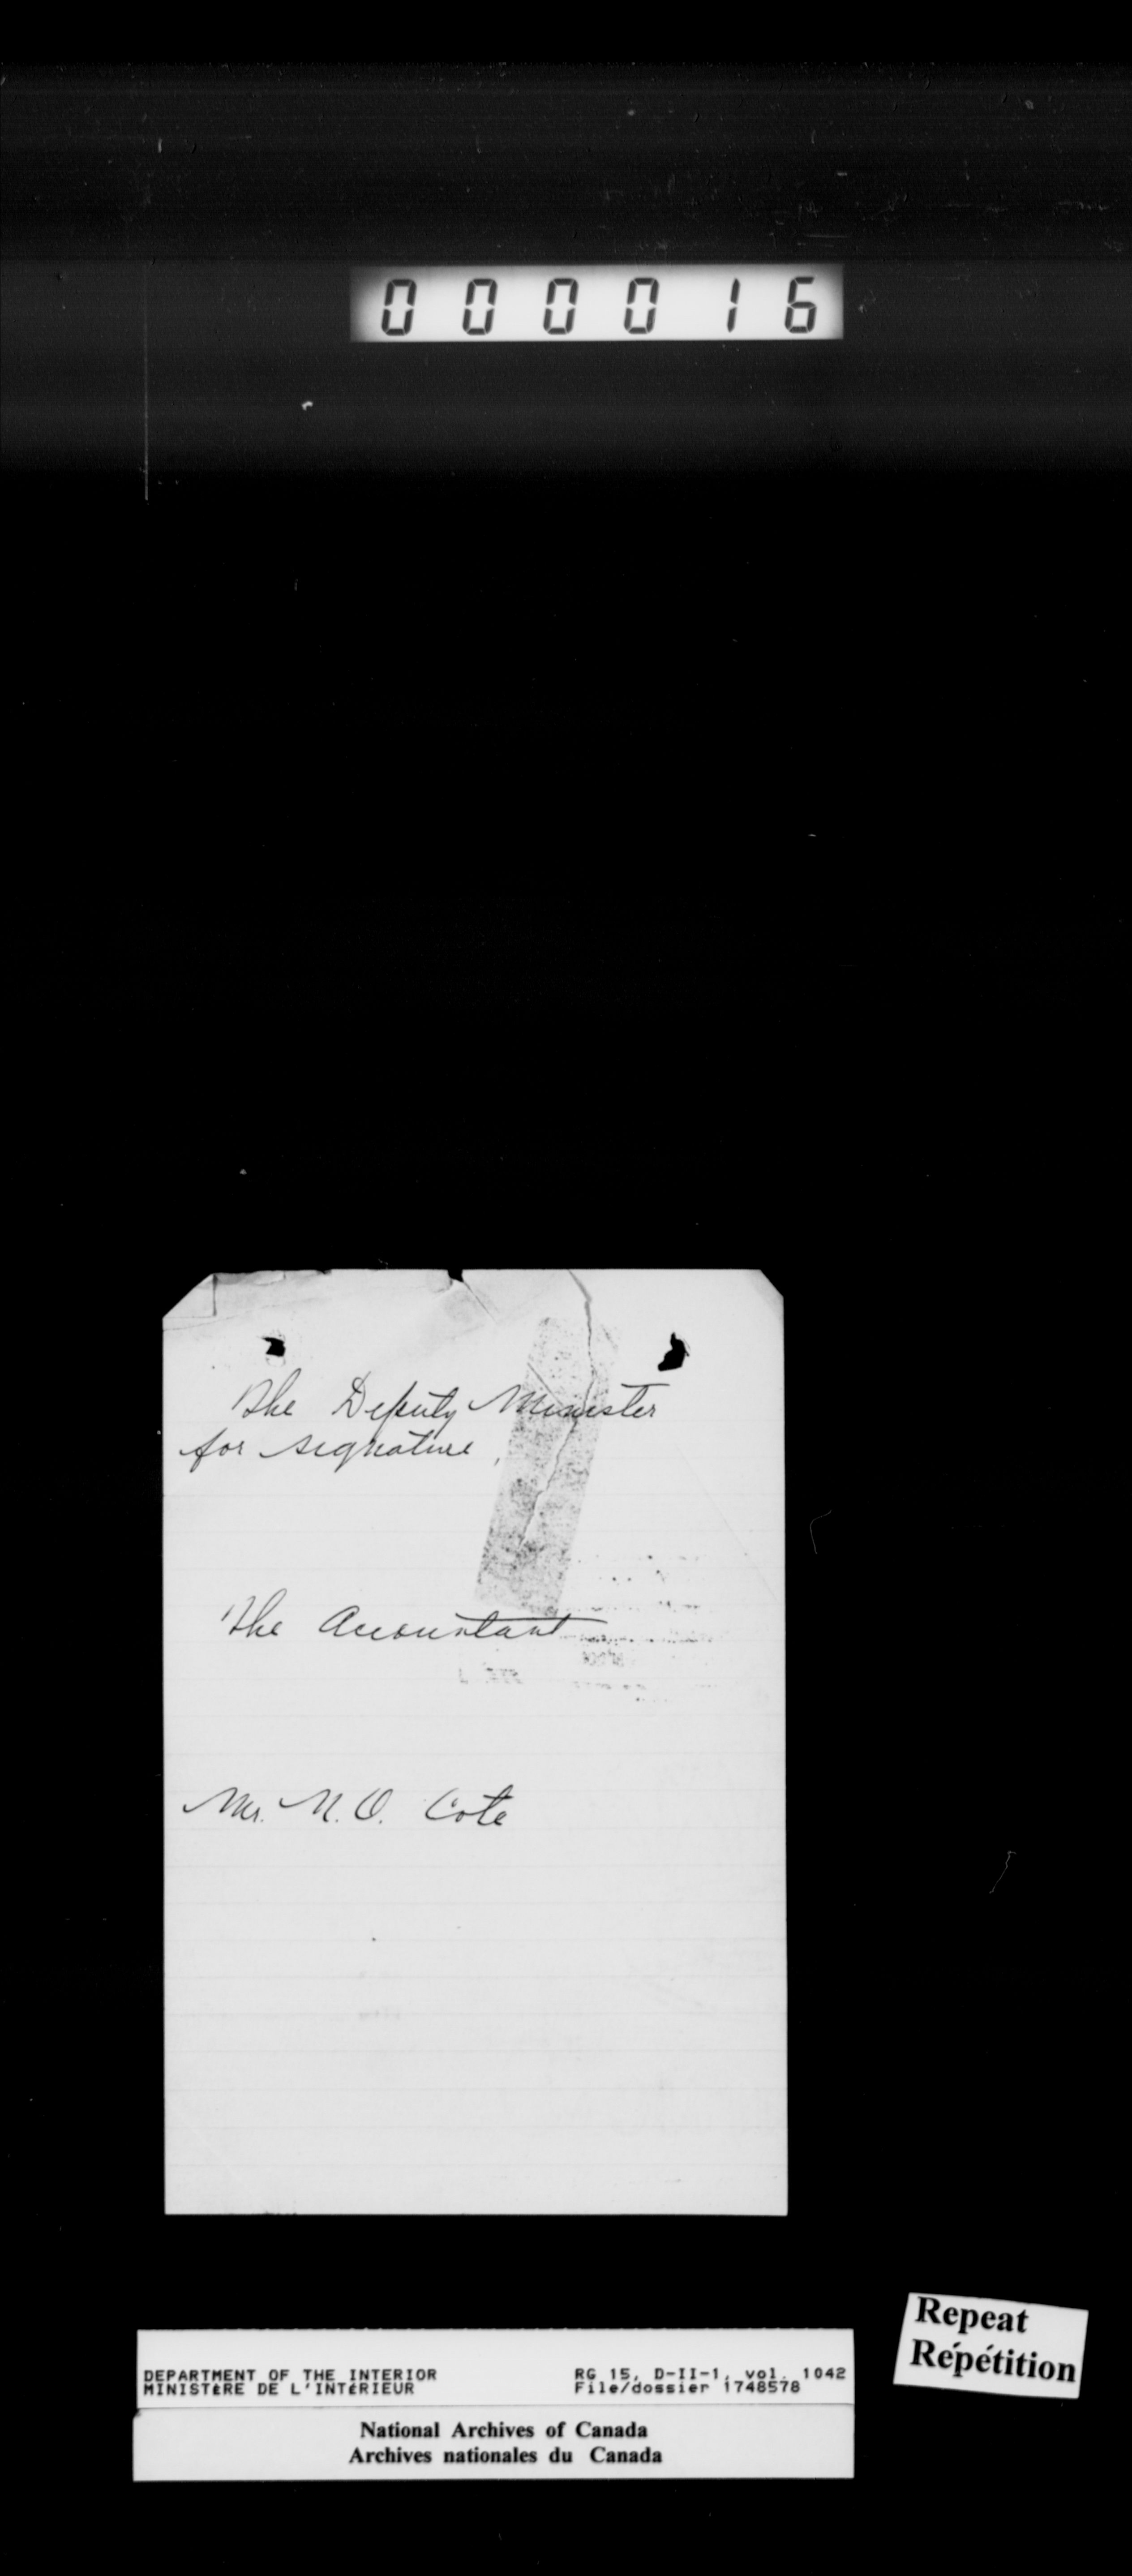 000016
The Deputy Minister
for signature,
The Accountant
Mr. N. O. Cote
Repeat
Répétition
DEPARTMENT OF THE INTERIOR
MINISTÈRE DE L'INTÉRIEUR
RG 15, D-II-1, vol. 1042
File/dossier 1748578
National Archives of Canada
Archives nationales du Canada